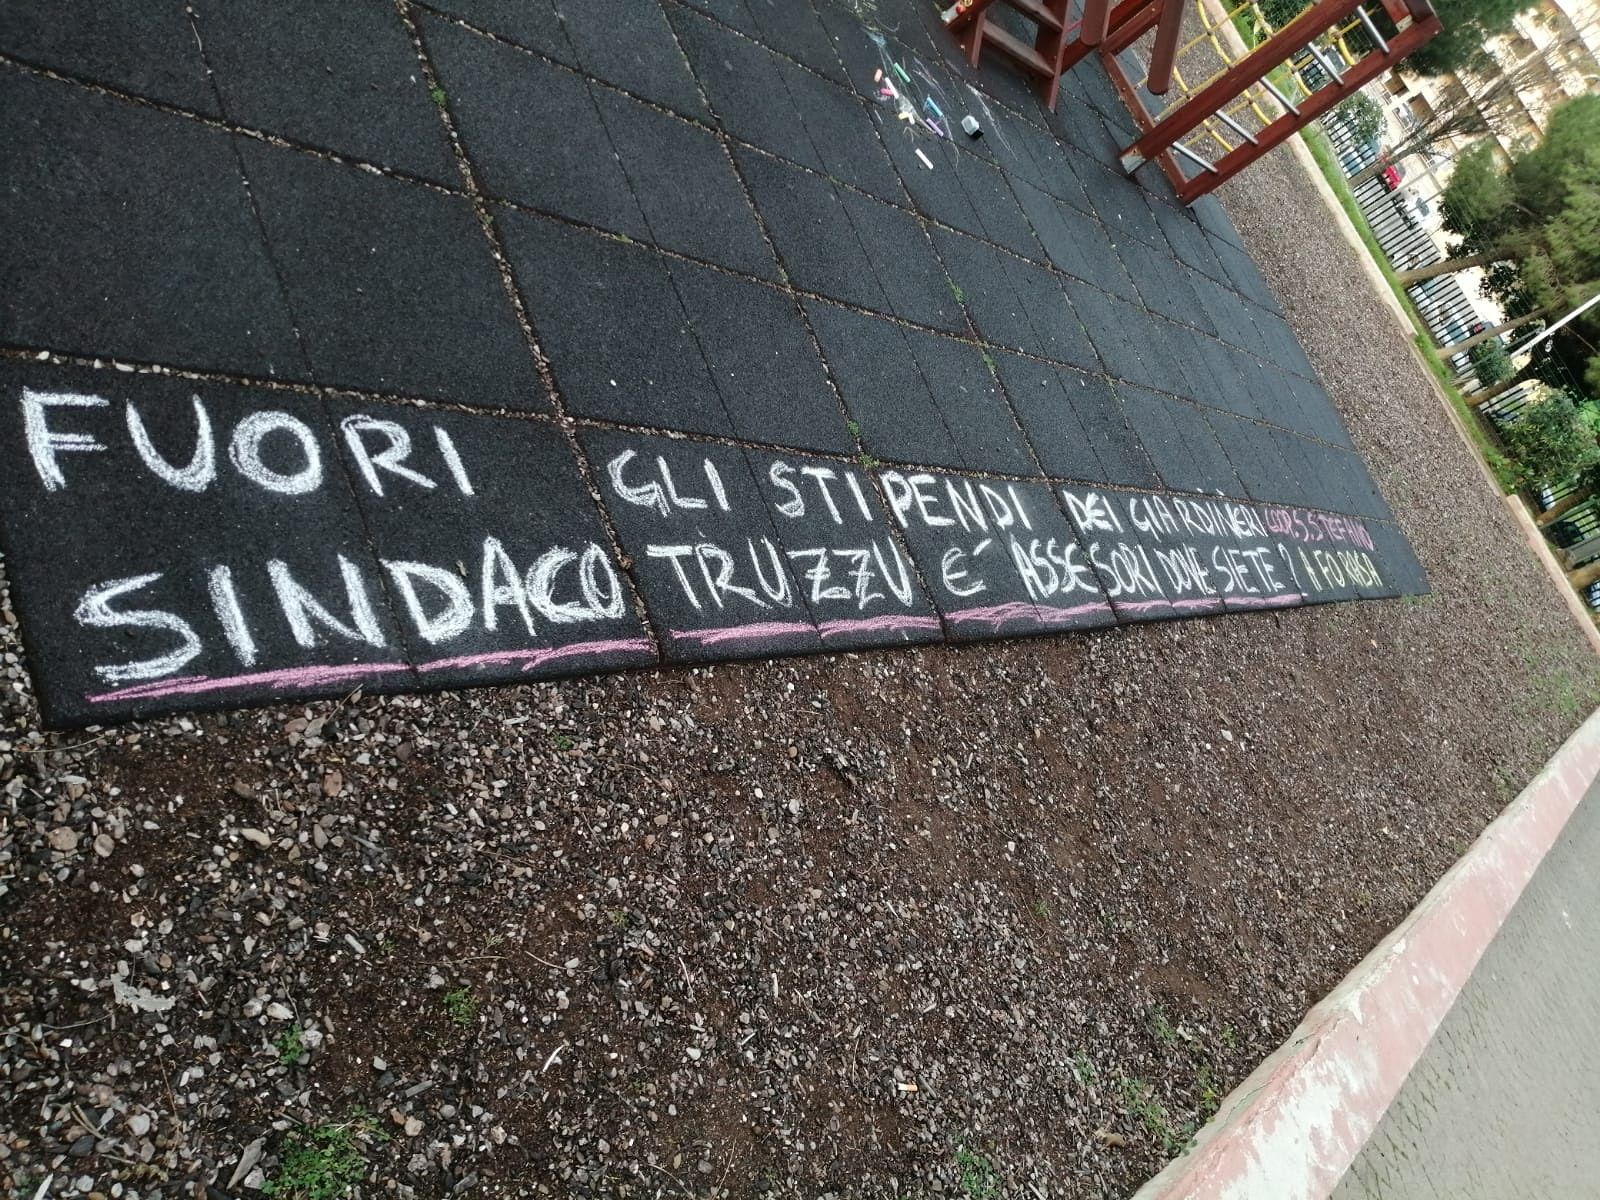 FUORI GLI STIPENDI DEI GIARDINERI COOP. S. STEFANO
SINDACO TRUZZU E' ASSESSORI DOVE SIETE? A FORASA